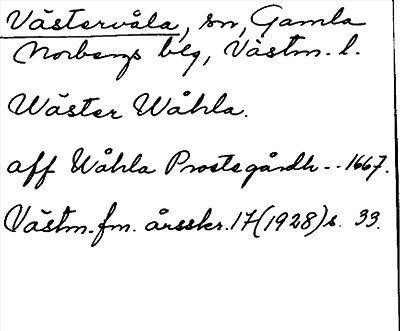 Västervåla, sn, Gamla
Norbergs blg, Västm. l.
Wäster Wåhla.
aff Wåhla Prostegårdh -- 1667.
Västm. fm. årsskr. 17 (1928) s. 33.